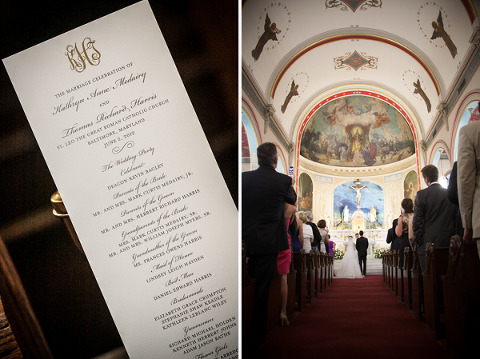 KHT
THE MARRIAGE CELEBRATION OF
Kathryn Anne Medairy
and
Thomas Richard Harris
ST. LEO THE GREAT ROMAN CATHOLIC CHURCH
BALTIMORE, MARYLAND
JUNE 2, 2012
The Wedding Party
Celebrant
DEACON KEVIN BAGLEY
Parents of the Bride
MR. AND MRS. MARK CURTIS MEDAIRY, JR.
Parents of the Groom
MR. AND MRS. HERBERT RICHARD HARRIS
Grandparents of the Bride
MR. AND MRS. MARK CURTIS MEDAIRY, SR.
MR. AND MRS. WILLIAM JOSEPH MYERS, SR.
Grandmother of the Groom
MRS. FRANCES OWENS HARRIS
Maid of Honor
LINDSEY LEIGH HAYDEN
Best Man
DANIEL EDWARD HARRIS
Bridesmaids
ELIZABETH GRACE CROMPTON
STEPHANIE SHAW KEARLE
KATHLEEN LEBLANC WILEY
Groomsmen
RICHARD
KENNETH HERBERT
ADAM JASON